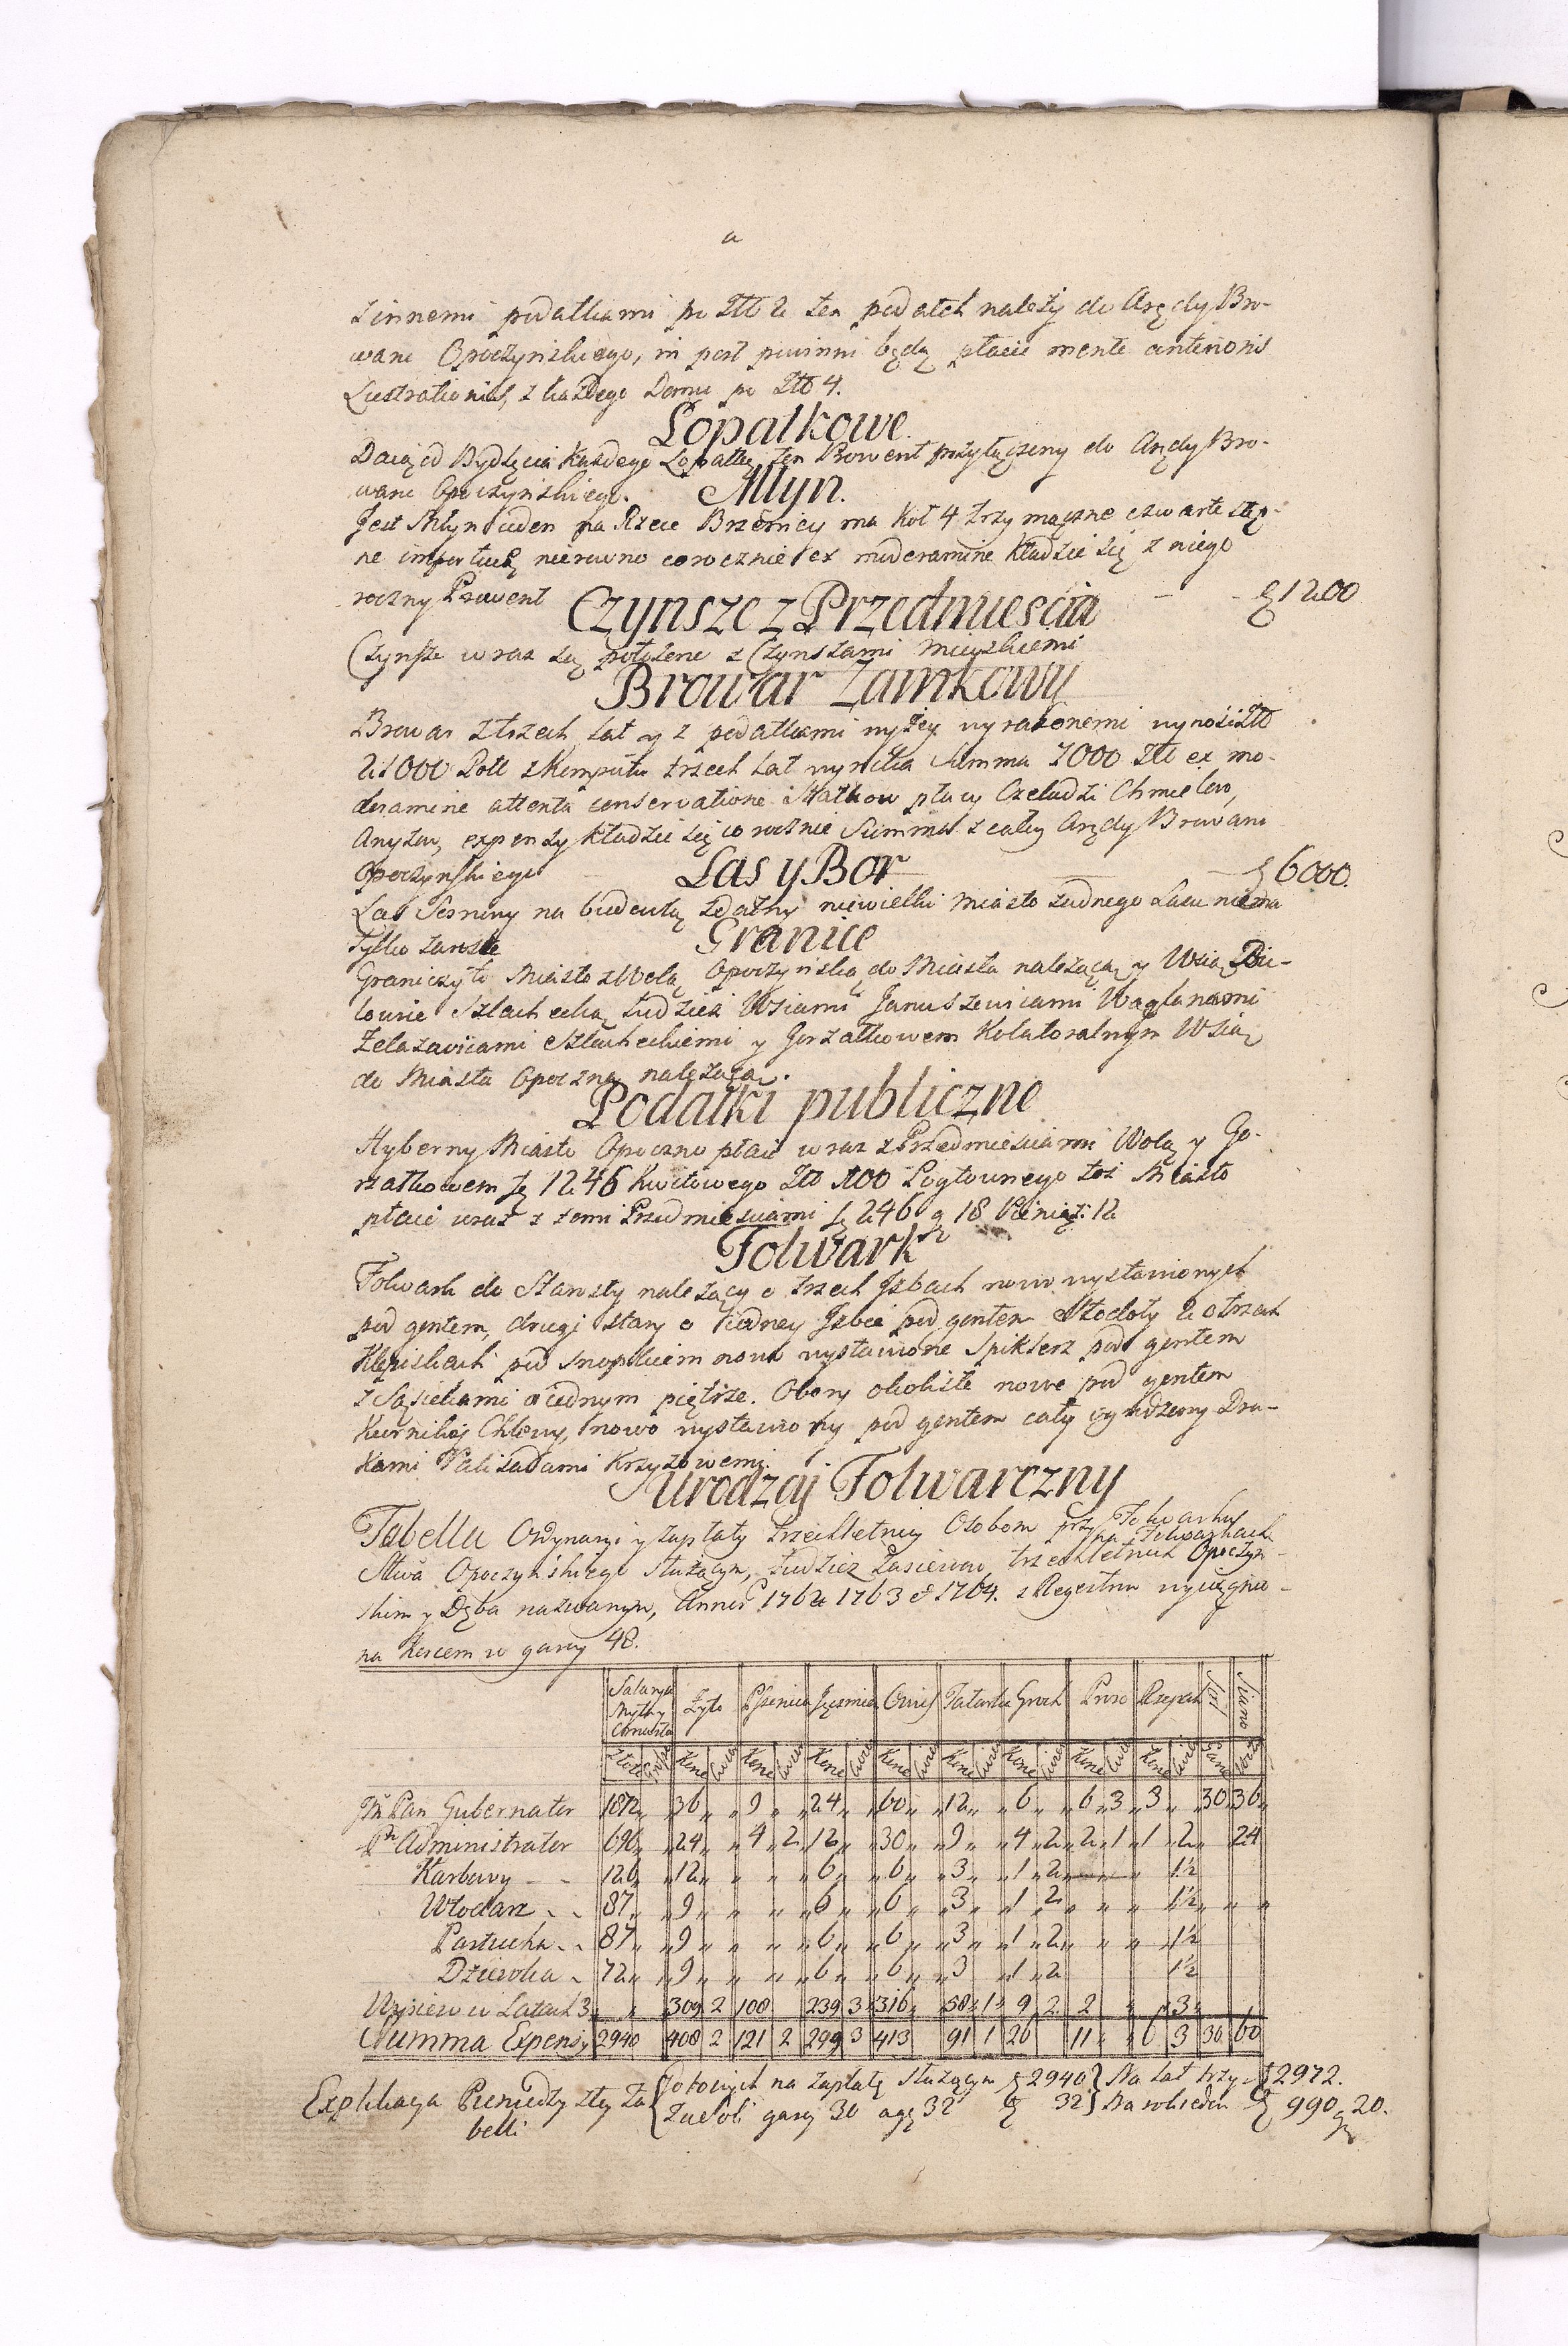 z innemi podatkami po Złł 2 ten podatek należy do Arędy Bro-
waru Opoczyńskiego, in post powinni będą płacić mente anterioris
Lustrationis, z każdego Domu po Złł 4.
Łopatkowe
Daią od Bydlęcia każdego Łopatkę, ten Prowent przyłączony do Arędy Bro-
waru Opoczyńskiego.
Młyn.
Jest Młyn ieden na Rzece Brzeźnicy ma kół 4 trzy mączne czwarte stęp-
ne importuią nierowno corocznie ex moderamine kładzie się z niego
roczny Prowent - - f 1200
Czynsze z Przedmiescia
Czynsze wraz są położone z Czynszami mieyskiemi
Browar Zamkowy
Browar z trzech Lat y z podatkami wyżey wyrażonemi wynosi Złł
21000 Poll z komputu trzech Lat wynikła Summa 7000 Złł ex mo-
deramine attenta conservatione Statkow płacy Czeladzi Chmielu,
Anyżu, expensy kładzie się corocznie Summa z całey Arędy Browaru
Opoczyńskiego - f 6000.
Las y Bor
Las Sosniny na budowlą zdatny niewielki Miasto żadnego Lasu niema
tylko zarosle
Granice
Graniczy to Miasto z Wolą Opoczyńską do Miasta należącą y Wsią Bu-
kowie Szlachecką tudzież Wsiami Januszewicami Waglanami
Żelazowicami Szlacheckiemi y Gorzałkowem Kolatoralnym Wsią
do Miasta Opoczna należącą.
Podatki publiczne
Hyberny Miasto Opoczno płaci wraz z Przedmiesciami Wolą y Go-
rzałkowem f 1246 Kwitowego Złł 100 Pogłownego toż Miasto
płaci wraz z temi Przedmiesciami f 246 g 18 Pieniąż: 12
Folwark
Folwark do Starosty należący o trzech Jzbach nowo wystawionych
pod gontem, drugi stary o iedney Jzbie pod gontem Stodoły 2 o trzech
Klepiskach pod snopkiem nowo wystawione Spiklerz pod gontem
z Sąsiekami o iednym piętrze. Obory okoliste nowe pod gontem
Kurniki Chlewy, nowo wystawiony pod gontem cały ogrodzony Dra-
kami Palisadami Krzyżowemi.
Urodzaj Folwarczny
Tabella Ordynaryi y zapłaty trzechletniey Osobom przy Folwarku
Stwa Opoczyńskiego służącym, tudzież Zasiewow trzechletnich na Folwarkach Opoczyn-
skim y Dęba nazwanym, Annis 1762 1763 & 1764. z Regestru wyciągnio-
na Korcem w garcy 48.
Salarya Mythy Conventa | Żyto | Pszenica | Jęczmień | Owies | Tatarka | Groch | Proso | Rzepak | Sól | Siano
Złote | Grosze | Korce | Cwier | Korce | Cwier | Korce | Cwier | Korce | Cwier | Korce | Cwier | Korce | Cwier | Korce | Cwier | Korce | Cwier | Garce | Wozy
JM Pan Gubernator 1872 „ 36 „ 9 „ 24 „ 60 „ 12 „ 6 „ 6 3 3 „ 30 36
Pn Administrator 696 „ 24 „ 4 2 12 „ 30 „ 9 „ 4 2 2 1 1 2 „ 24
Karbowy - - 126 „ 12 „ „ „ 6 „ 6 „ 3 „ 1 2 „ „ 1½
Włodarz - - 87 „ 9 „ „ „ 6 „ 6 „ 3 „ 1 2 „ „ „ 1½ „ „
Pastucha - - 87 „ 9 „ „ „ 6 „ 6 „ 3 „ 1 2 „ „ „ 1½
Dziewka - 72 „ 9 „ „ „ 6 „ 6 „ 3 1 2 1½
Wysiew w Latach 3 „ „ 309 2 108 239 3 316 „ 58 1 9 2 2 „ 3
Summa Expensy 2940 408 2 121 2 299 3 413 91 1 26 11 „ 6 3 30 60
Explikacya Pieniędzy z tey Ta- { Gotowych na zapłatę służącym f 2940 } Na Lat trzy f 2972.
belli { Za Soli garcy 30 a g 32 f 32 } Na rok ieden f 990 g 20.